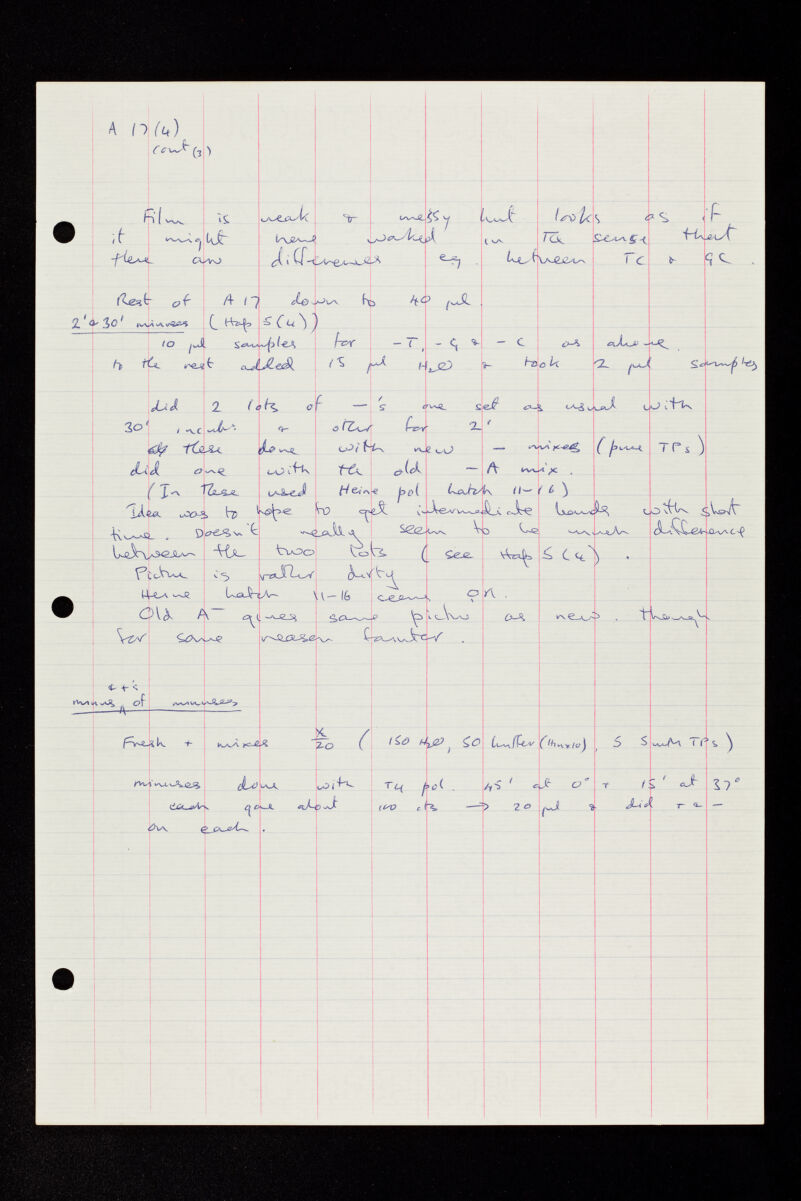 A 17(4)
cont (3)
Film is weak & messy but looks as if
it might have worked in the sense that
there are differences eg. between TC & GC.
Rest of A 17 down to 40 µl.
2' & 30' minuses (Hap 5(4))
10 µl samples for -T, -G & -C as above.
to the rest added 15 µl H2O & took 2 µl samples
did 2 lots of -'s one set as usual with
30' incub: & other for 2'
These done with new - mixes (pure TPs)
did one with the old -A mix.
(In these used Heine pol batch 11-16)
Idea was to hope to get intermediate bands with short
time. Doesn't really seem to be much difference
between the two lots (see Hap 5(4)).
Picture is rather dirty
Heine batch 11-16 seems OK.
Old A- gives same pictur as new. though
for some reason fainter.
& +'s
minus of minuses
Fresh + mixes X/20 (150 H2O, 50 buffer (Hinx10), 5 5mM TPs)
minuses done with T4 pol. 45' at 0° + 15' at 37°
each gave about 100 cts → 20 µl & did + & -
on each.